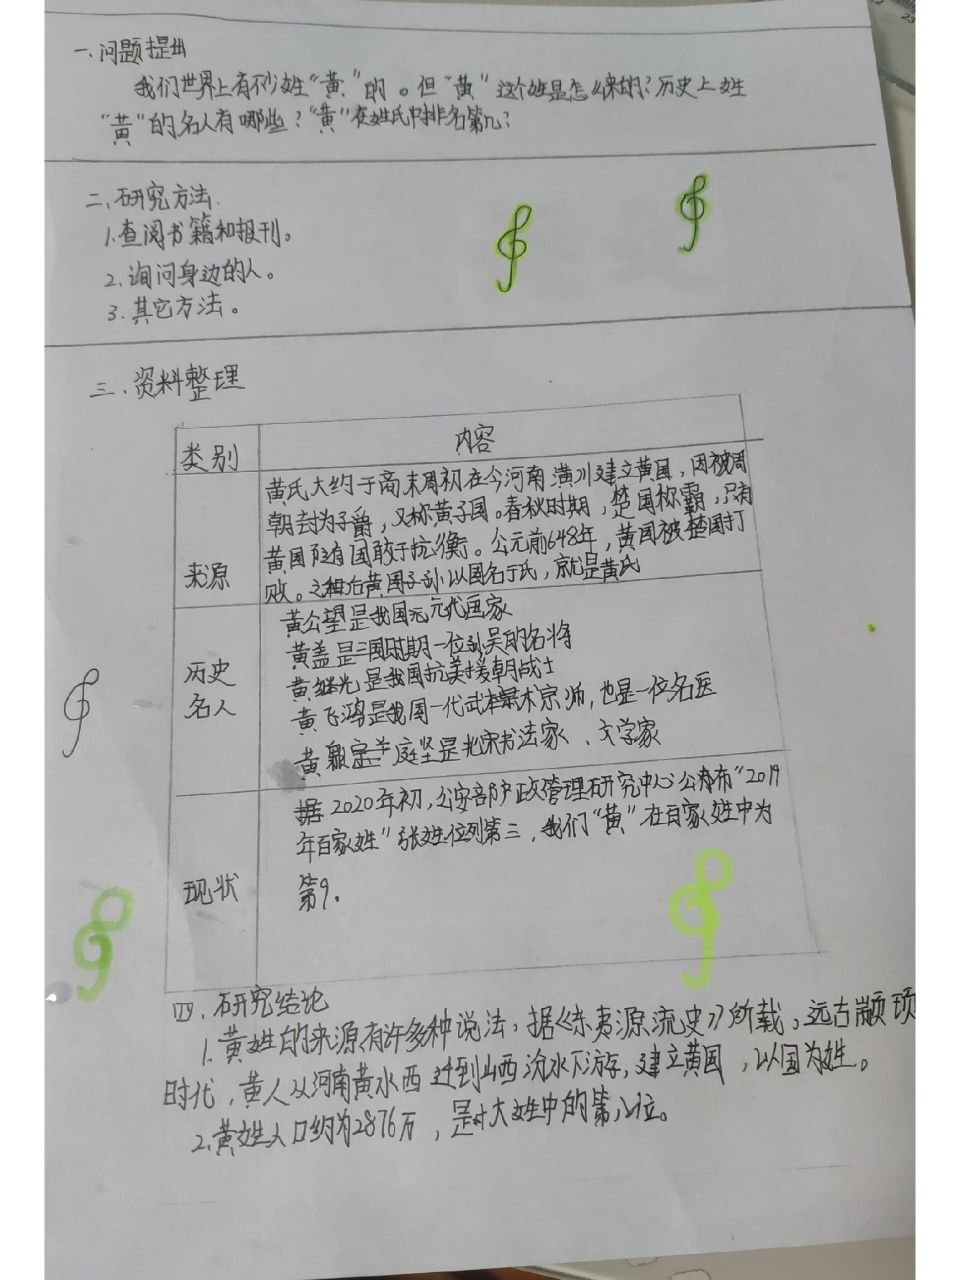 一、问题提出
我们世界上有不少姓“黄”的。但“黄”这个姓是怎么来的？历史上姓
“黄”的名人有哪些？“黄”在姓氏中排名第几？
二、研究方法
1.查阅书籍和报刊。
2.询问身边的人。
3.其它方法。
三、资料整理
类别 内容
来源
黄氏大约于商末周初在今河南潢川建立黄国，因被周
朝封为子爵，又称黄子国。春秋时期，楚国称霸，只有
黄国敢于抗衡。公元前648年，黄国被楚国打
败。之后黄国子孙以国名于氏，就是黄氏
历史
名人
黄公望是我国元代画家
黄盖是三国时期一位孙吴的名将
黄继光是我国抗美援朝战士
黄飞鸿是我国一代武术宗师，也是一位名医
黄庭坚是北宋书法家、文学家
现状
据2020年初，公安部户政管理研究中心公布“2019
年百家姓”张姓位列第三，我们“黄”在百家姓中为
第9.
四.研究结论
1.黄姓的来源有许多种说法，据《东夷源流史》所载，远古颛顼
时代，黄人从河南黄水西迁到山西汾水下游，建立黄国，以国为姓。
2.黄姓人口约为2876万，是大姓中的第位。